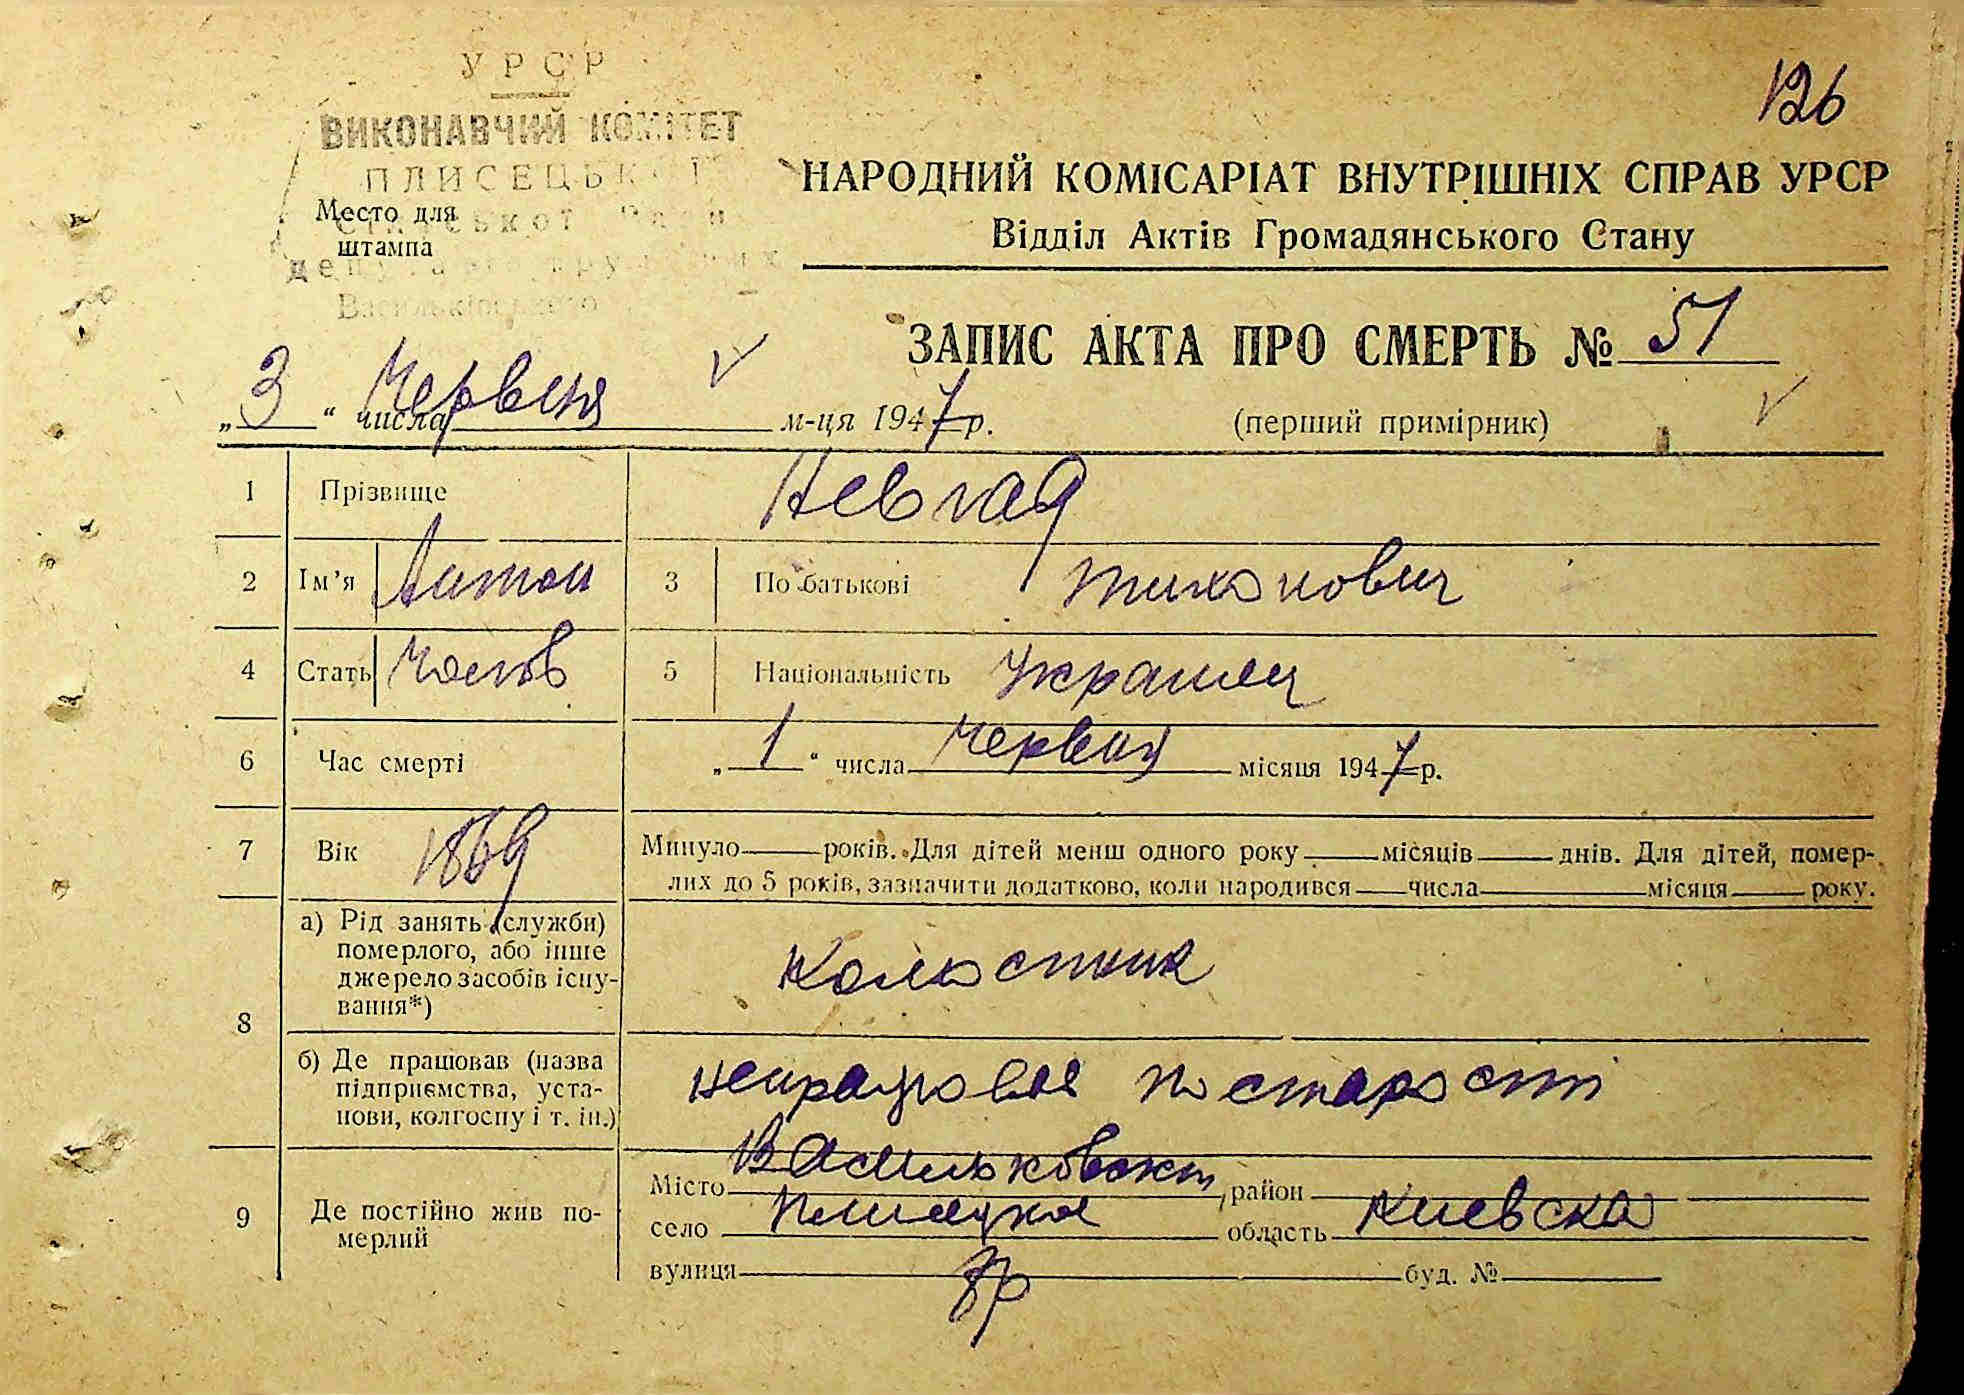 126
УРСР
ВИКОНАВЧИЙ КОМІТЕТ
ПЛИСЕЦЬКОЇ
Место для
штампа
Васильківського
НАРОДНИЙ КОМІСАРІАТ ВНУТРІШНІХ СПРАВ УРСР
Відділ Актів Громадянського Стану
ЗАПИС АКТА ПРО СМЕРТЬ № 51
„ 3 “ числа Червня м-ця 1947 р.
(перший примірник)
1 Прізвище Невгад
2 Ім’я Антон 3 По батькові Тихонович
4 Стать Чолов 5 Національність Українец
6 Час смерті „ 1 “ числа Червня місяця 1947 р.
7 Вік 1869 Минуло років. Для дітей менш одного року місяців днів. Для дітей, помер-
лих до 5 років, зазначити додатково, коли народився числа місяця року.
8 а) Рід занять (служби)
померлого, або інше
джерело засобів існу-
вання*)
Колгостник
б) Де працював (назва
підприємства, уста-
нови, колгоспу і т. ін.)
непрацював по старості
9 Де постійно жив по-
мерлий
Місто Васильковский, район
село Плисецке область Киевска
вулиця буд. №